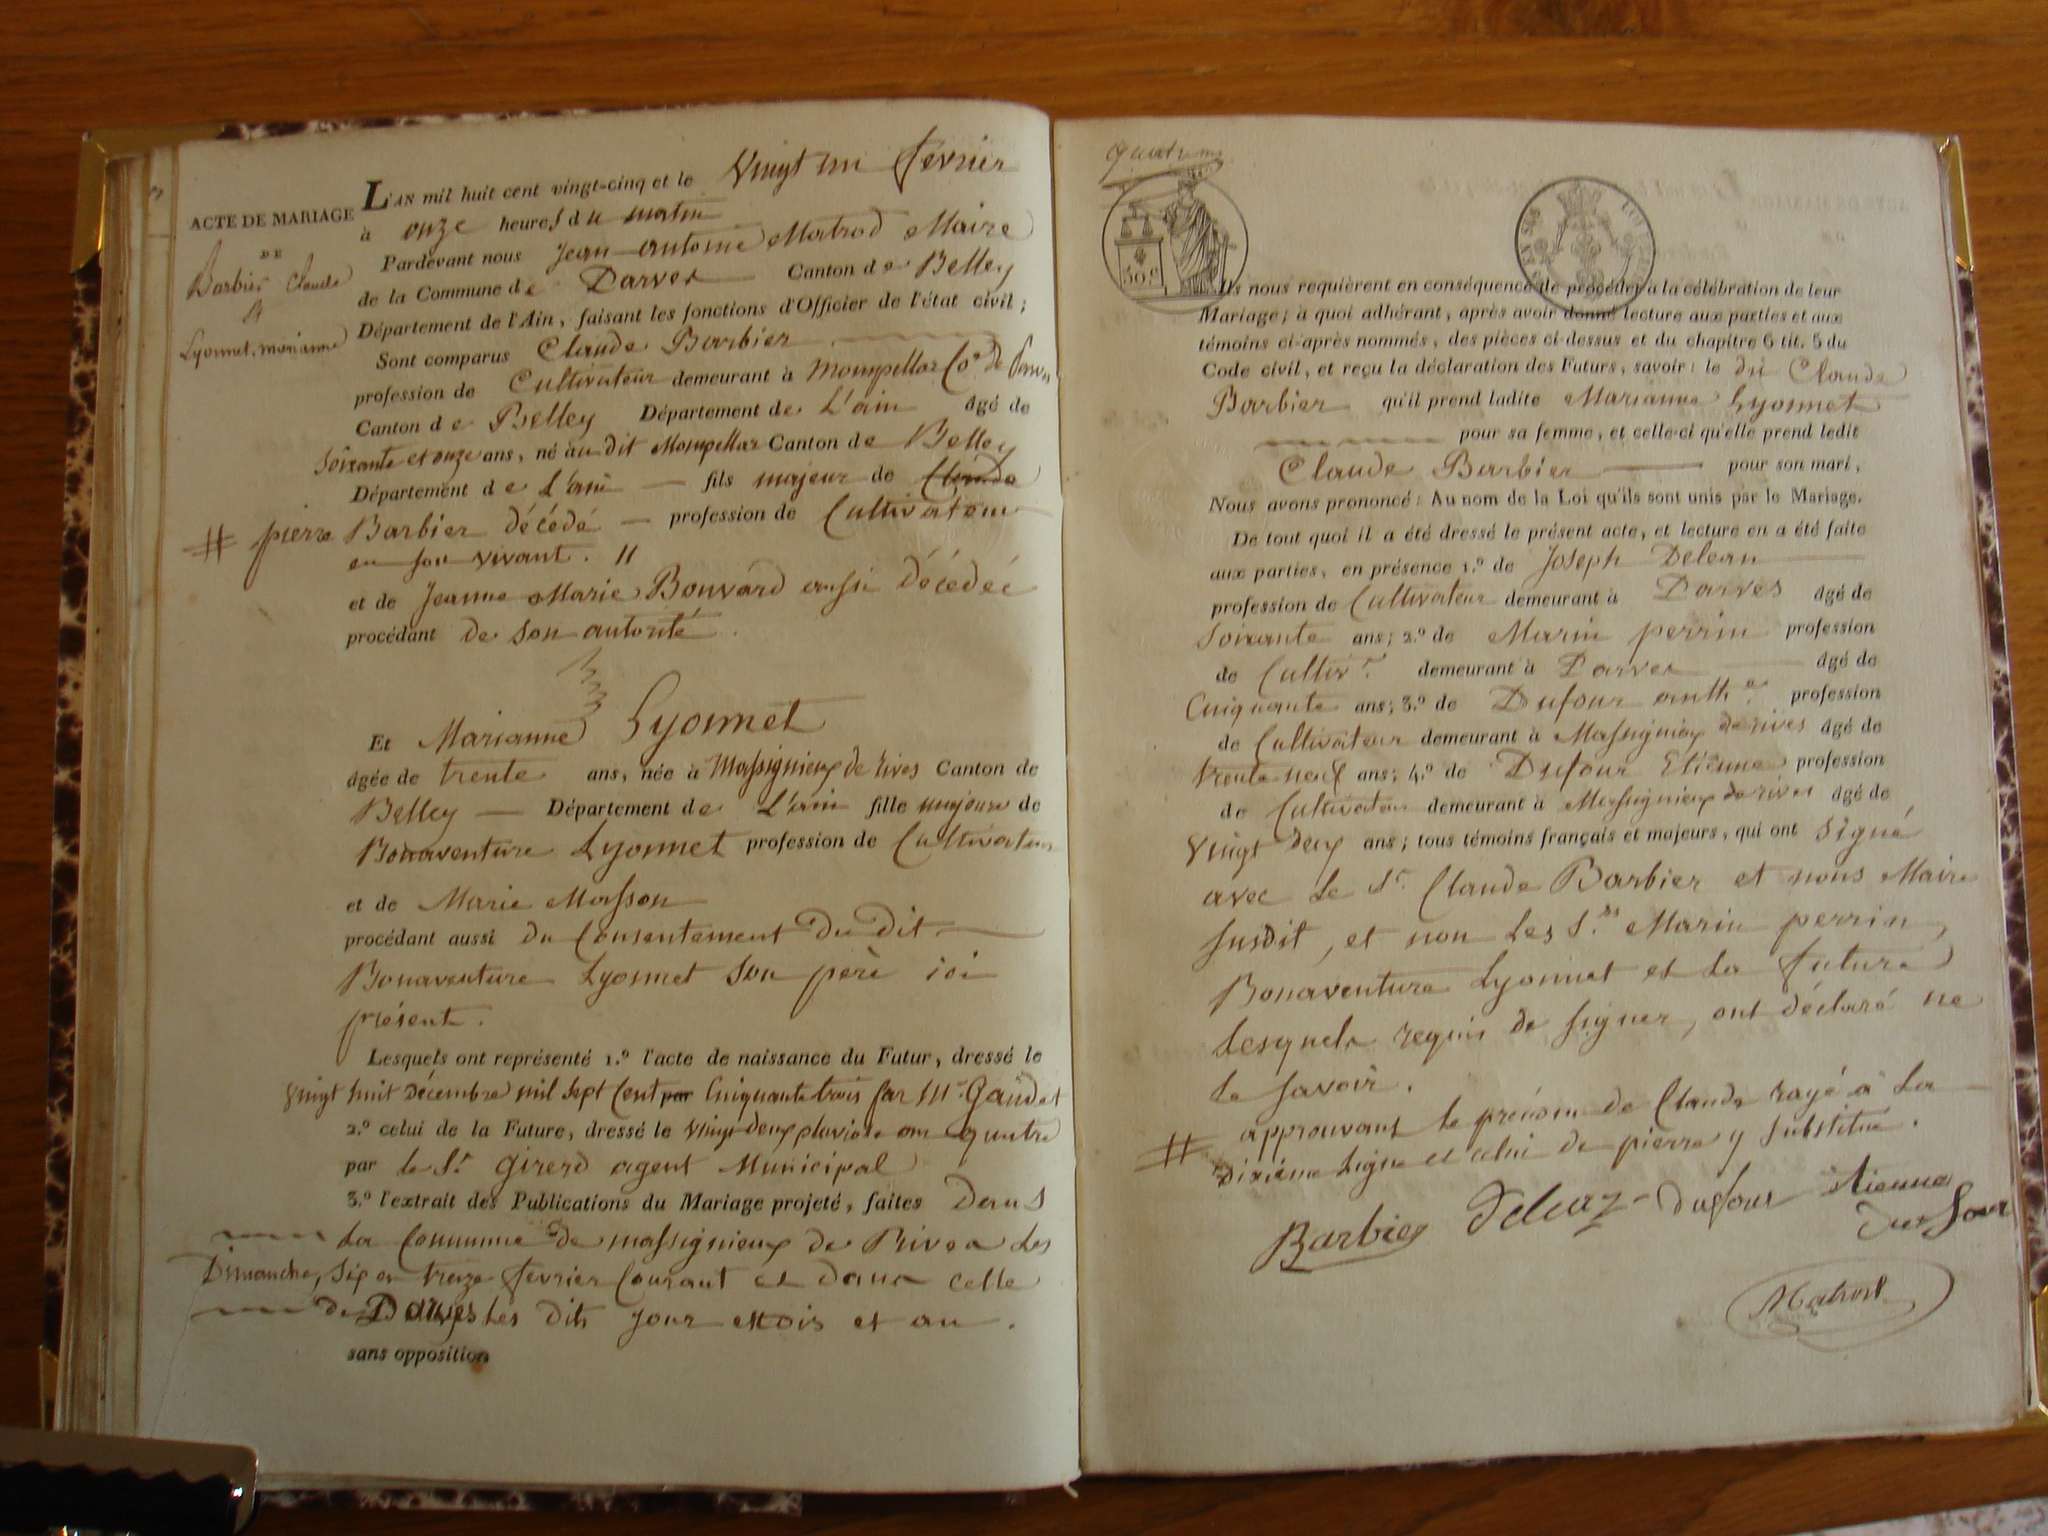 ACTE DE MARIAGE
DE
Barbier Claude
et
Lyonnet marianne
L'AN mil huit cent vingt-cinq et le vingt un fevrier
à onze heures du matin
Pardevant nous Jean antoine Matrod Maire
de la Commune de Parves Canton de Belley
Département de l'Ain, faisant les fonctions d'Officier de l'état civil;
Sont comparus Claude Barbier
profession de Cultivateur demeurant à Mompellaz Co.ne de Parves
Canton de Belley Département de L'ain âgé de
soixante et onze ans, né au dit Mompellaz Canton de Belley
Département de L'ain fils majeur de Claude
# pierre Barbier décédé profession de Cultivateur
en son vivant. //
et de Jeanne Marie Bouvard aussi décédée
procédant de son autorité.
Et Marianne Lyonnet
âgée de trente ans, née à Massignieux de rives Canton de
Belley Département de L'ain fille majeure de
Bonaventure Lyonnet profession de Cultivateur
et de Marie Masson
procédant aussi du Consentement du dit
Bonaventure Lyonnet son père ici
présent.
Lesquels ont représenté 1.º l'acte de naissance du Futur, dressé le
vingt huit décembre mil sept Cent par Cinquante trois par Mr. Gaudet
2.º celui de la Future, dressé le vingt deux pluviose an quatre
par le Sr. Girerd agent Municipal
3.º l'extrait des Publications du Mariage projeté, faites Dans
la Commune de massignieux de Rives les
Dimanche, six et treize fevrier Courant et dans celle
de Parves les dits jour et mois et an.
sans opposition
30 C
Ils nous requièrent en conséquence de procéder à la célébration de leur
Mariage; à quoi adhérant, après avoir donné lecture aux parties et aux
témoins ci-après nommés, des pièces ci-dessus et du chapitre 6 tit. 5 du
Code civil, et reçu la déclaration des Futurs, savoir: le dit Claude
Barbier qu'il prend ladite Marianne Lyonnet
pour sa femme, et celle-ci qu'elle prend ledit
Claude Barbier pour son mari,
Nous avons prononcé: Au nom de la Loi qu'ils sont unis par le Mariage.
De tout quoi il a été dressé le présent acte, et lecture en a été faite
aux parties, en présence 1.º de Joseph Deleaz
profession de Cultivateur demeurant à Parves âgé de
soixante ans; 2.º de Marin perrin profession
de Cultiv.r demeurant à Parves âgé de
Cinquante ans; 3.º de Dufour anth.e profession
de Cultivateur demeurant à Massignieux de rives âgé de
trente neuf ans; 4.º de Dufour Etienne profession
de Cultivateur demeurant à Massignieux de rives âgé de
vingt deux ans; tous témoins français et majeurs, qui ont signé
avec le Sr. Claude Barbier et nous Maire
susdit, et non les S.rs Marin perrin,
Bonaventure Lyonnet et la future
lesquels requis de signer, ont déclaré ne
le savoir.
# approuvant le prénom de Claude rayé à la
dixième ligne et celui de pierre y substitué.
Barbier Deleaz dufour etienne
dufour
Matrod